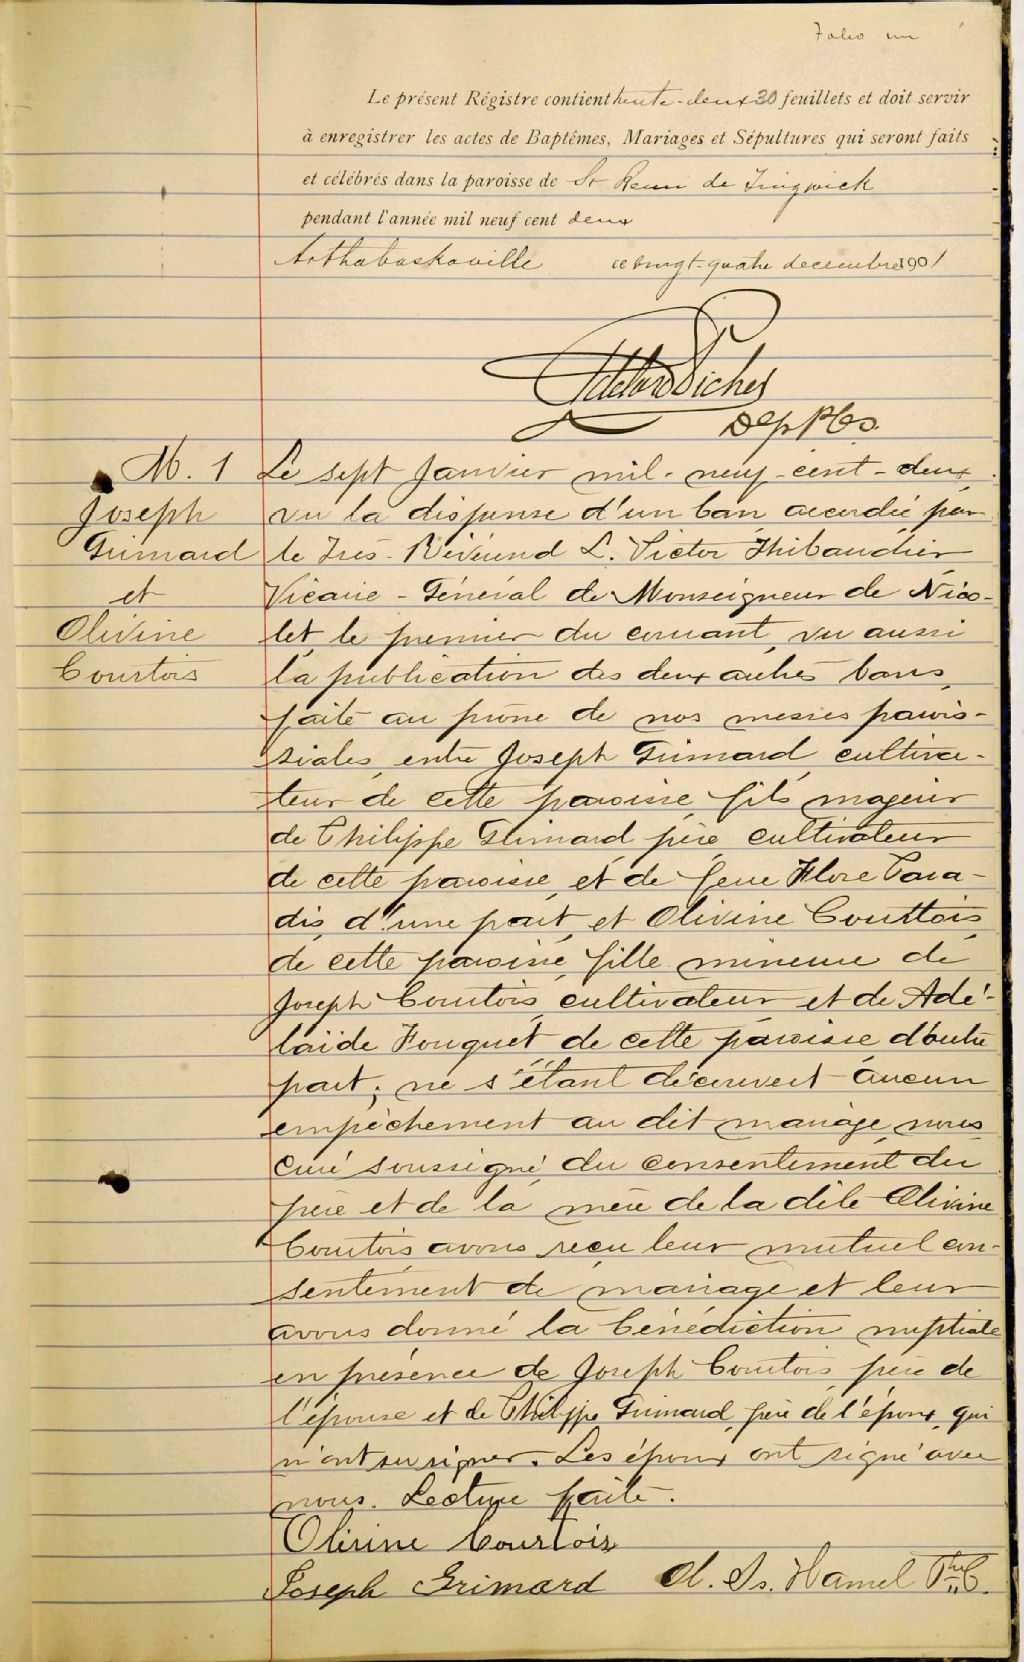 Folio un
Le présent Régistre contient trente-deux 30 feuillets et doit servir
à enregistrer les actes de Baptêmes, Mariages et Sépultures qui seront faits
et célébrés dans la paroisse de St Remi de Tingwick
pendant l'année mil neuf cent deux
Arthabaskaville ce vingt-quatre decembre 1901
Piches
Dep P.C.S.
M. 1
Joseph
Grimard
et
Olivine
Courtois
Le sept Janvier mil-neuf-cent-deux
vu la dispense d'un ban accordée par
le Très-Révérend L. Victor Thibaudier
Vicaire-Général de Monseigneur de Nico-
let, le premier du courant, vu aussi
la publication des deux autres bans,
faite au prône de nos messes parois-
siales, entre Joseph Grimard, cultiva-
teur de cette paroisse, fils majeur
de Philippe Grimard père cultivateur
de cette paroisse, et de feue Flore Para-
dis, d'une part, et Olivine Courttois,
de cette paroisse, fille mineure de
Joseph Courtois, cultivateur et de Adé-
laïde Fouquet de cette paroisse d'autre
part; ne s'étant découvert aucun
empêchement au dit mariage, nous,
curé soussigné, du consentement du
père et de la mère de la dite Olivine
Courtois avons reçu leur mutuel con-
sentement de mariage et leur
avons donné la bénédiction nuptiale
en présence de Joseph Courtois, père de
l'épouse et de Philippe Grimard, père de l'époux, qui
n'ont su signer. Les époux ont signé avec
nous. Lecture faite.
Olivine Courtois
Joseph Grimard Hamel Ptre C.